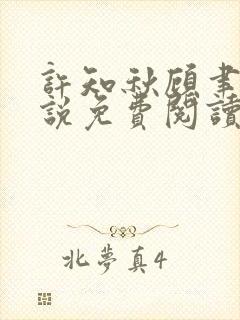 許知秋顧書
說免費閱讀
北夢真4